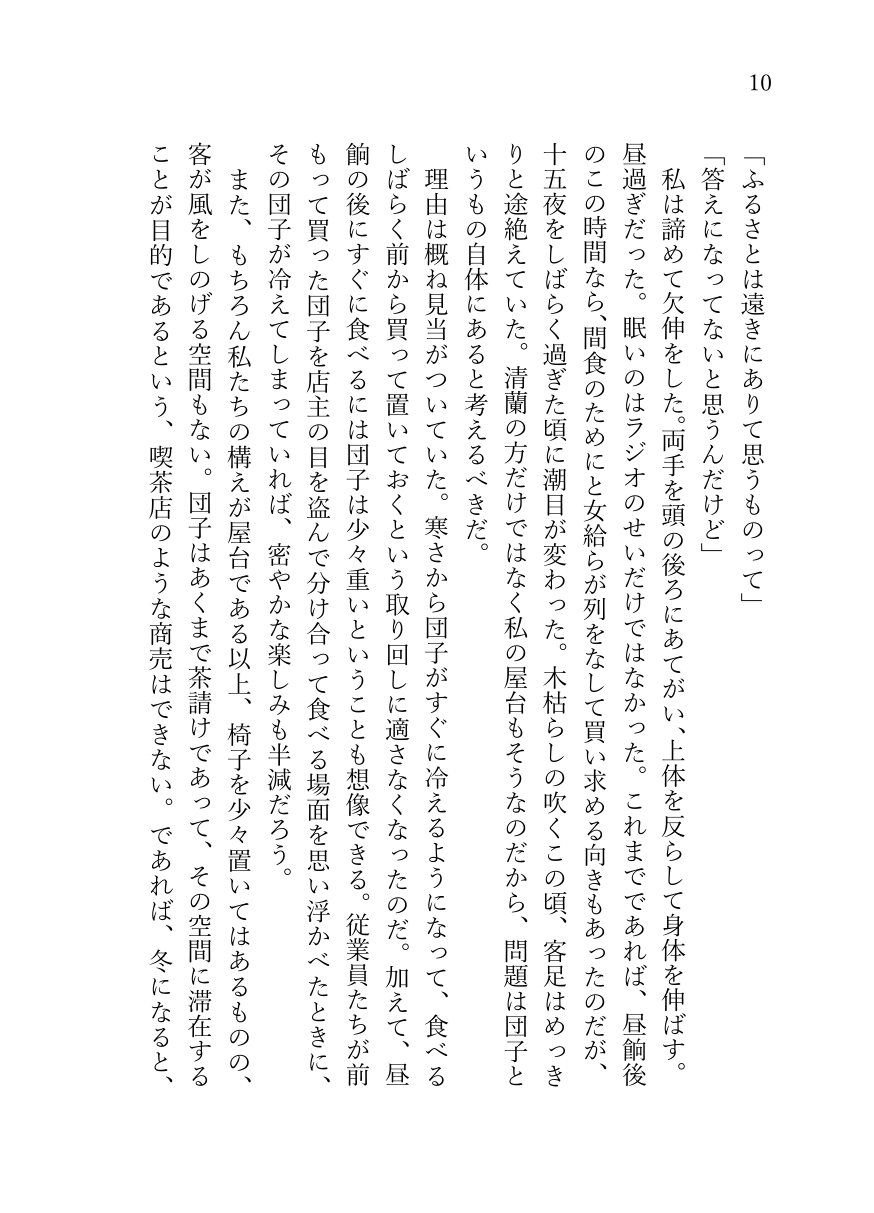 10
「ふるさとは遠きにありて思うものって」
「答えになってないと思うんだけど」
　私は諦めて欠伸をした。両手を頭の後ろにあてがい、上体を反らして身体を伸ばす。
昼過ぎだった。眠いのはラジオのせいだけではなかった。これまでであれば、昼餉後
のこの時間なら、間食のためにと女給らが列をなして買い求める向きもあったのだが、
十五夜をしばらく過ぎた頃に潮目が変わった。木枯らしの吹くこの頃、客足はめっき
りと途絶えていた。清蘭の方だけではなく私の屋台もそうなのだから、問題は団子と
いうもの自体にあると考えるべきだ。
　理由は概ね見当がついていた。寒さから団子がすぐに冷えるようになって、食べる
しばらく前から買って置いておくという取り回しに適さなくなったのだ。加えて、昼
餉の後にすぐに食べるには団子は少々重いということも想像できる。従業員たちが前
もって買った団子を店主の目を盗んで分け合って食べる場面を思い浮かべたときに、
その団子が冷えてしまっていれば、密やかな楽しみも半減だろう。
　また、もちろん私たちの構えが屋台である以上、椅子を少々置いてはあるものの、
客が風をしのげる空間もない。団子はあくまで茶請けであって、その空間に滞在する
ことが目的であるという、喫茶店のような商売はできない。であれば、冬になると、